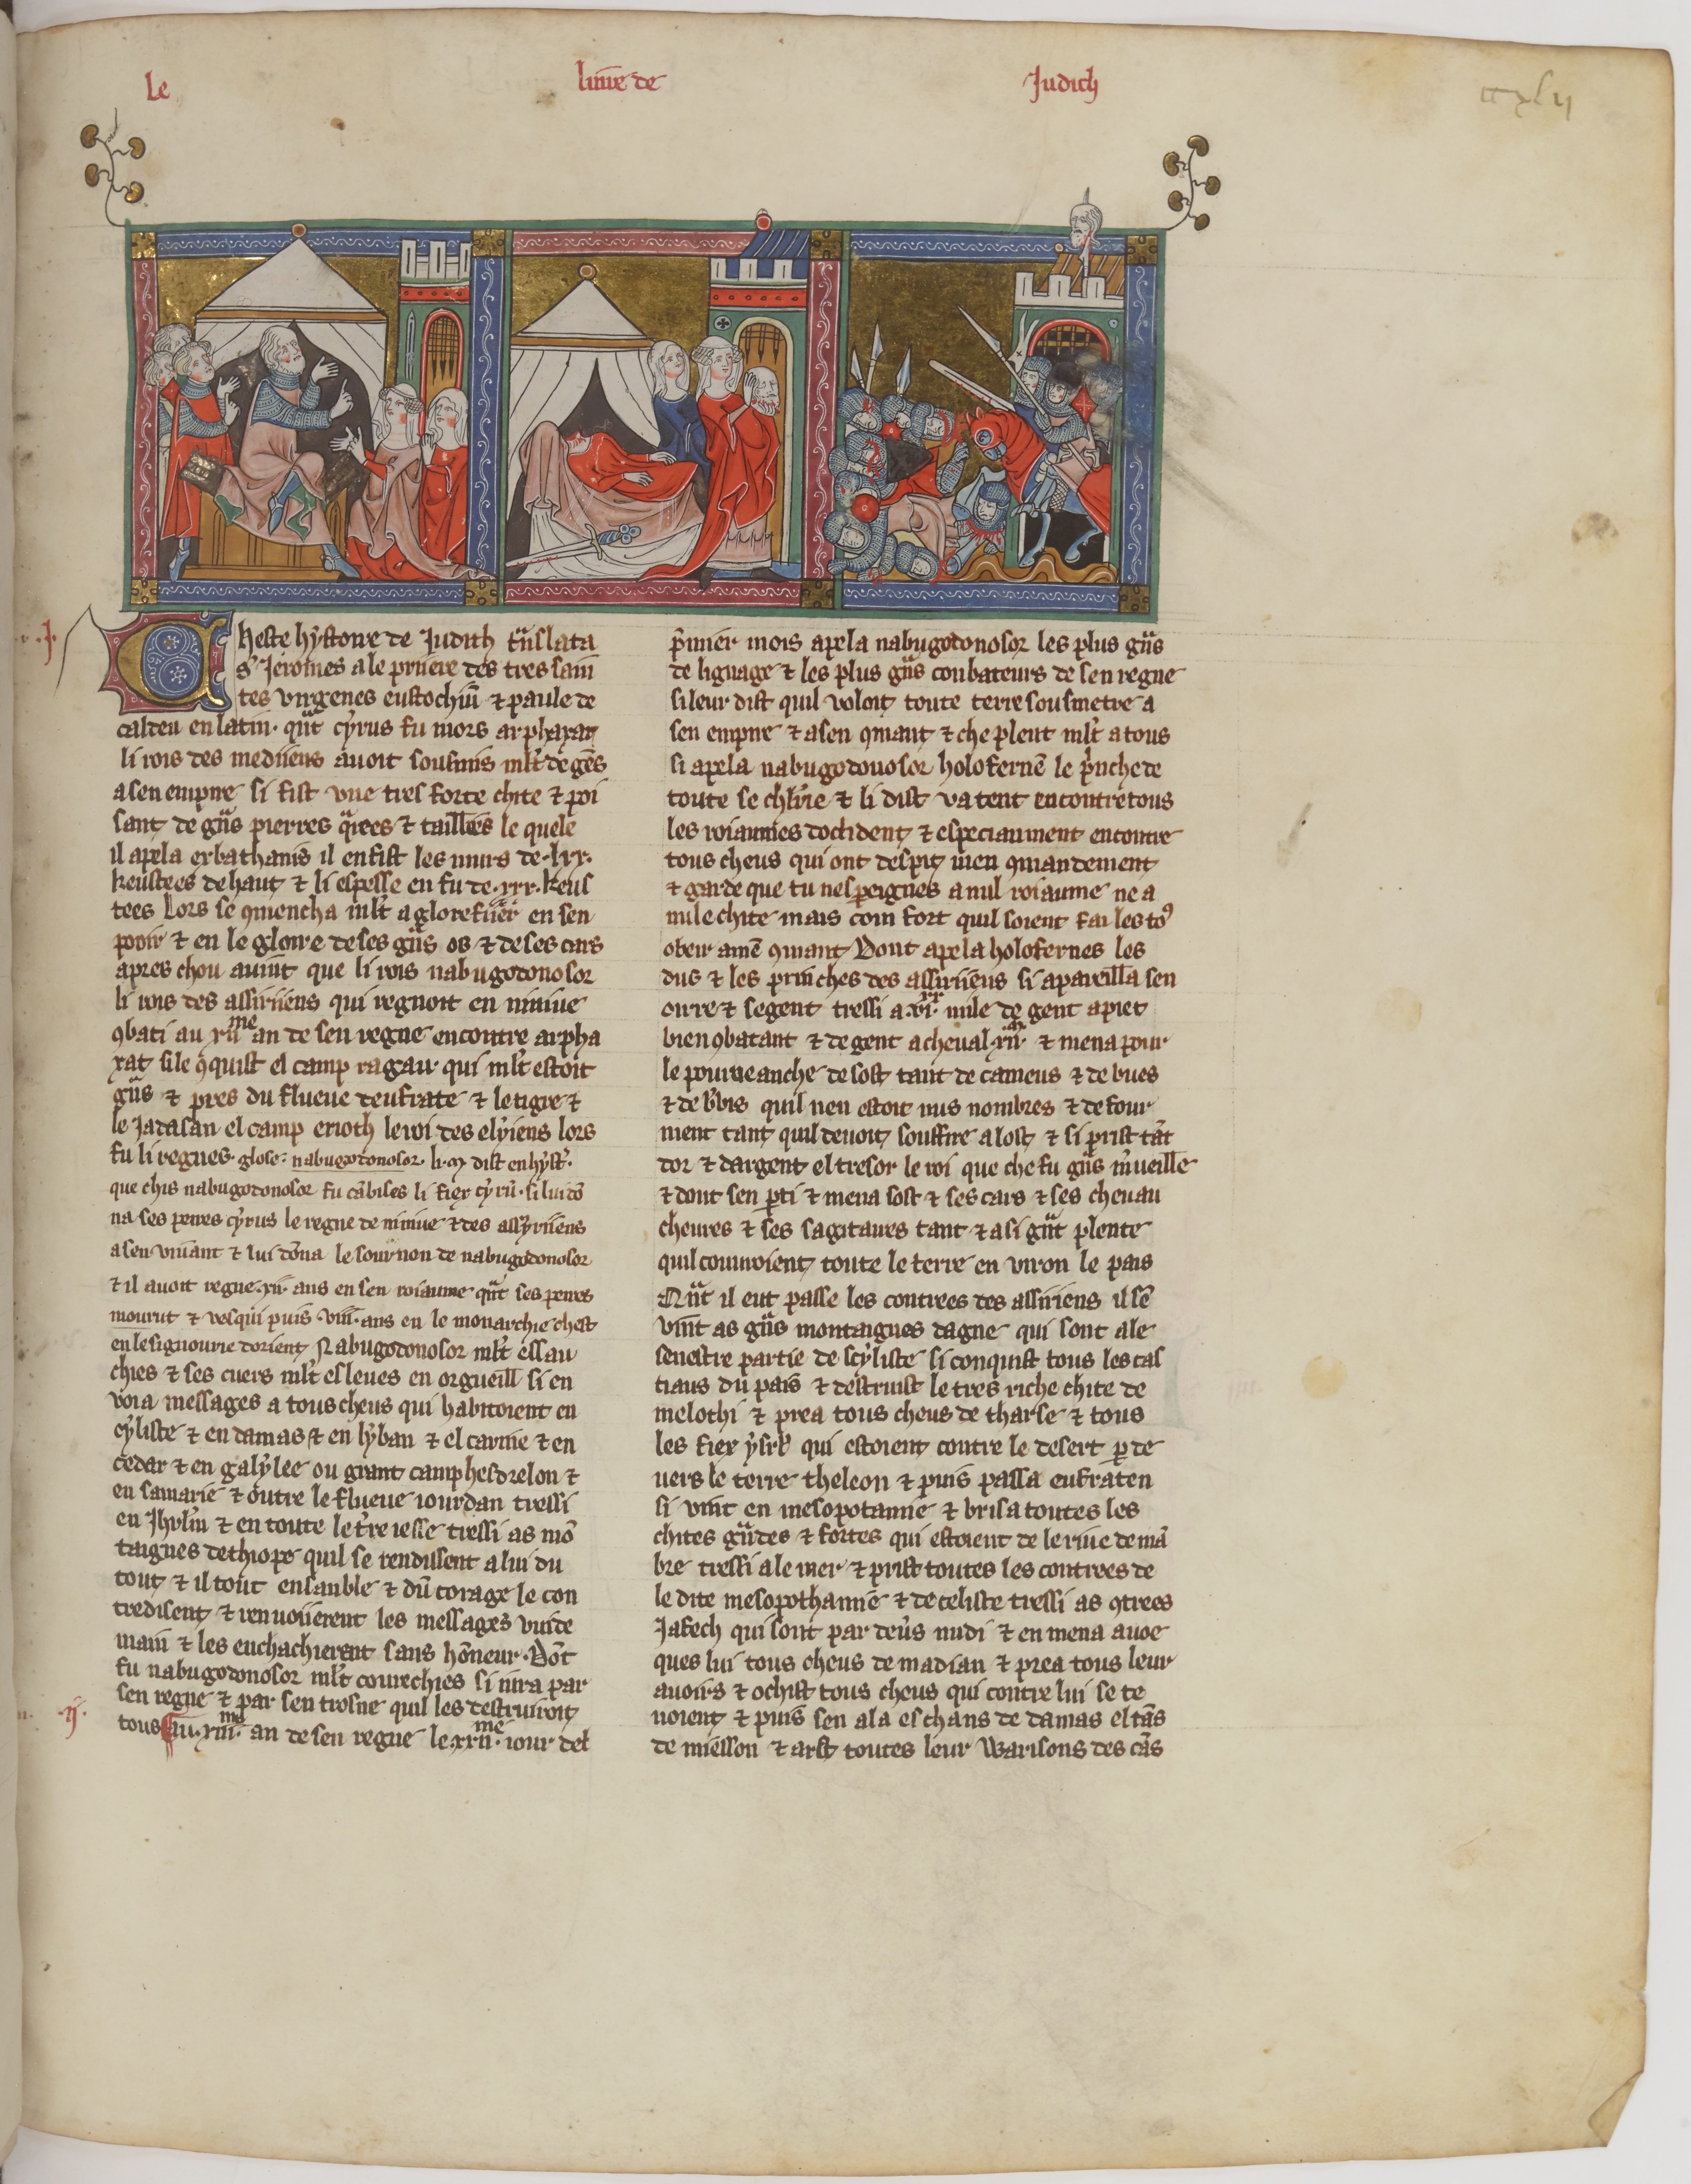 Le liure de Judich
.j.
Cheste hystoire de Judith t̃nslata
s' Jeromes a le priiere des tres sain
tes virgenes eustochiũ ⁊ paule de
caldeu en latin. qñt cyrus fu mors arphaxat
li rois des mediiens auoit sousmis ml't de gẽs
a sen empire si fist vne tres forte chite ⁊ poi
sant de gñs pierres qͥrees ⁊ taillees le quele
il apela erbathanis il en fist les murs de .lxx.
keustees de haut ⁊ li espesse en fu de .xxx. keus
tees Lors se ꝯmencha ml't a glorefiier en sen
pooir ⁊ en le gloire de ses gñs os ⁊ de ses cars
apres chou auiñt que li rois nabugodonosor
li rois des assiriiens qui regnoit en niniue
ꝯbati au xii.me an de sen regne encontre arpha
xat si le ꝯquist el camp ragau qui ml't estoit
gñs ⁊ pres du flueue deufrate ⁊ le tigre ⁊
le Jadasan el camp erioth le roi des elyiens lors
fu li regnes. glose: nabugodonosor. li. m̃ dist en hyst'.
que chis nabugodonosor fu cãbises li fiex cyrũ. si lui dõ
na ses peres cyrus le regne de niniue ⁊ des assyriiens
a sen viuant ⁊ lui dõna le sournon de nabugodonosor
⁊ il auoit regne .xii. ans en sen roiaume qñt ses peres
mourut ⁊ vesqui puis .viii. ans en le monarchie chest
en le signourie dorient Nabugodonosor ml't essau
chies ⁊ ses cuers ml't esleues en orgueill si en
voia messages a tous cheus qui habitoient en
cyliste ⁊ en damas ⁊ en lyban ⁊ el carme ⁊ en
cedar ⁊ en galylee ou grant camp hesdrelon ⁊
en samarie ⁊ outre le flueue iourdan tressi
en Jhrl'm ⁊ en toute le t're iesse tressi as mõ
taignes dethiope quil se rendissent a lui du
tout ⁊ il tout ensanble ⁊ dũ corage le con
tredisent ⁊ renuoiierent les messages vuide
main ⁊ les enchachierent sans hõneur. Dõt
fu nabugodonosor ml't courechies si iura par
sen regne ⁊ par sen trosne quil les destruiroit
.ij.
tous Au .xiii.me an de sen regne le .xxii.me iour del
p̃mier mois apela nabugodonosor les plus gñs
de lignage ⁊ les plus gñs conbateurs de sen regne
si leur dist quil voloit toute terre sousmetre a
sen empire ⁊ a sen ꝯmant ⁊ che pleut ml't a tous
si apela nabugodonosor holofernẽ le p̃nche de
toute se ch'lrie ⁊ li dist va tent encontre tous
les roiaumes dochident ⁊ especiaument encontre
tous cheus qui ont despit men ꝯmandement
⁊ garde que tu nespeignes a nul roiaume ne a
nule chite mais com fort quil soient fai les to9
obeir a mẽ ꝯmant Dont apela holofernes les
dus ⁊ les princhesdes assiriiens si apareilla sen
oirre ⁊ se gent tressi a .vi.xx mile de gent a piet
bien ꝯbatant ⁊ de gent a cheual .xii.m ⁊ mena pour
le pourueanche de sost tant de cameus ⁊ de bues
⁊ de b'bis quil nen estoit nus nombres ⁊ de four
ment tant quil deuoit souffire a lost ⁊ si prist tãt
dor ⁊ dargent el tresor le roi que che fu gñs m'ueille
⁊ dont sen p̱ti ⁊ mena sost ⁊ ses cars ⁊ ses cheuau
cheures ⁊ ses sagitaires tant ⁊ a si gñt plente
quil couuroient toute le terre en viron le pais
Qñt il eut passe les contrees des assiriens il sẽ
vint as gñs montaignes dagne qui sont a le
senestre partie de scyliste si conquist tous les cas
tiaus du pais ⁊ destruist le tres riche chite de
melothi ⁊ prea tous cheus de tharse ⁊ tous
les fiex ysrl' qui estoient contre le desert p̱ de
uers le terre theleon ⁊ puis passa eufraten
si vint en mesopotamie ⁊ brisa toutes les
chites gñdes ⁊ fortes qui estoient de le riue de mã
bre tressi a le mer ⁊ prist toutes les contrees de
le dite mesopothamie ⁊ de celiste tressi as ꝯtrees
Jafech qui sont par deũs midi ⁊ en mena auoe
ques lui tous cheus de madian ⁊ prea tous leur
auoirs ⁊ ochist tous cheus qui contre lui se te
noient ⁊ puis sen ala es chans de damas el tãs
de miesson ⁊ arst toutes leur warisons des cãs